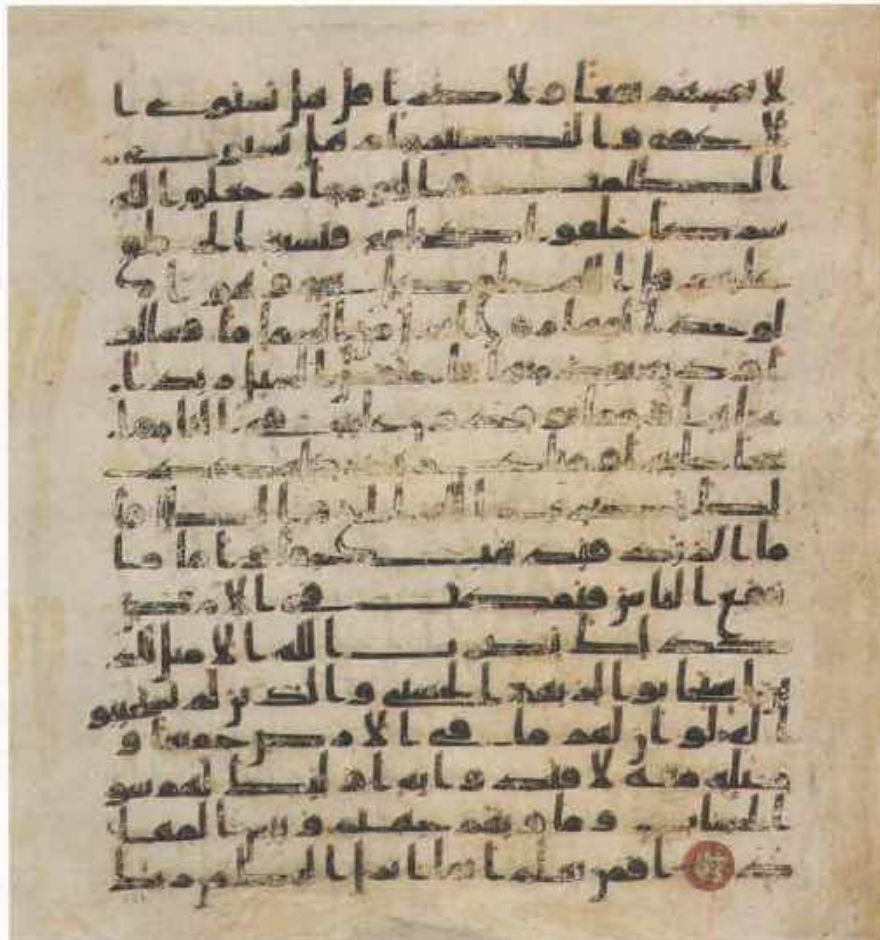 لا نفسهم نفعا ولا ضرا قل هل يستوى ا
لاعمى والبصير ام هل تستوى
الظلمت والنور ام جعلوا لله
شركا خلقوا كخلقه فتشبه الخلق
عليهم قل الله خلق كل شى وهو ا
لوحد القهر انزل من السما ما فسالت
اودية بقدرها فاحتمل السيل زبدا
رابيا ومما توقدون عليه فى النار ابتغا
حلية او متع زبد مثله كذ
لك يضرب الله الحق والبطل فا
ما الزبد فيذهب جفا واما ما
ينفع الناس فيمكث فى الارض
كذلك يضرب الله الامثل للذ
ين استجابوا لربهم الحسنى والذين لم يستجيبو
ا له لو ان لهم ما فى الارض جميعا و
مثله معه لافتدوا به اولئك لهم سو
الحساب وماويهم جهنم وبئس المها
د افمن يعلم انما انزل اليك من